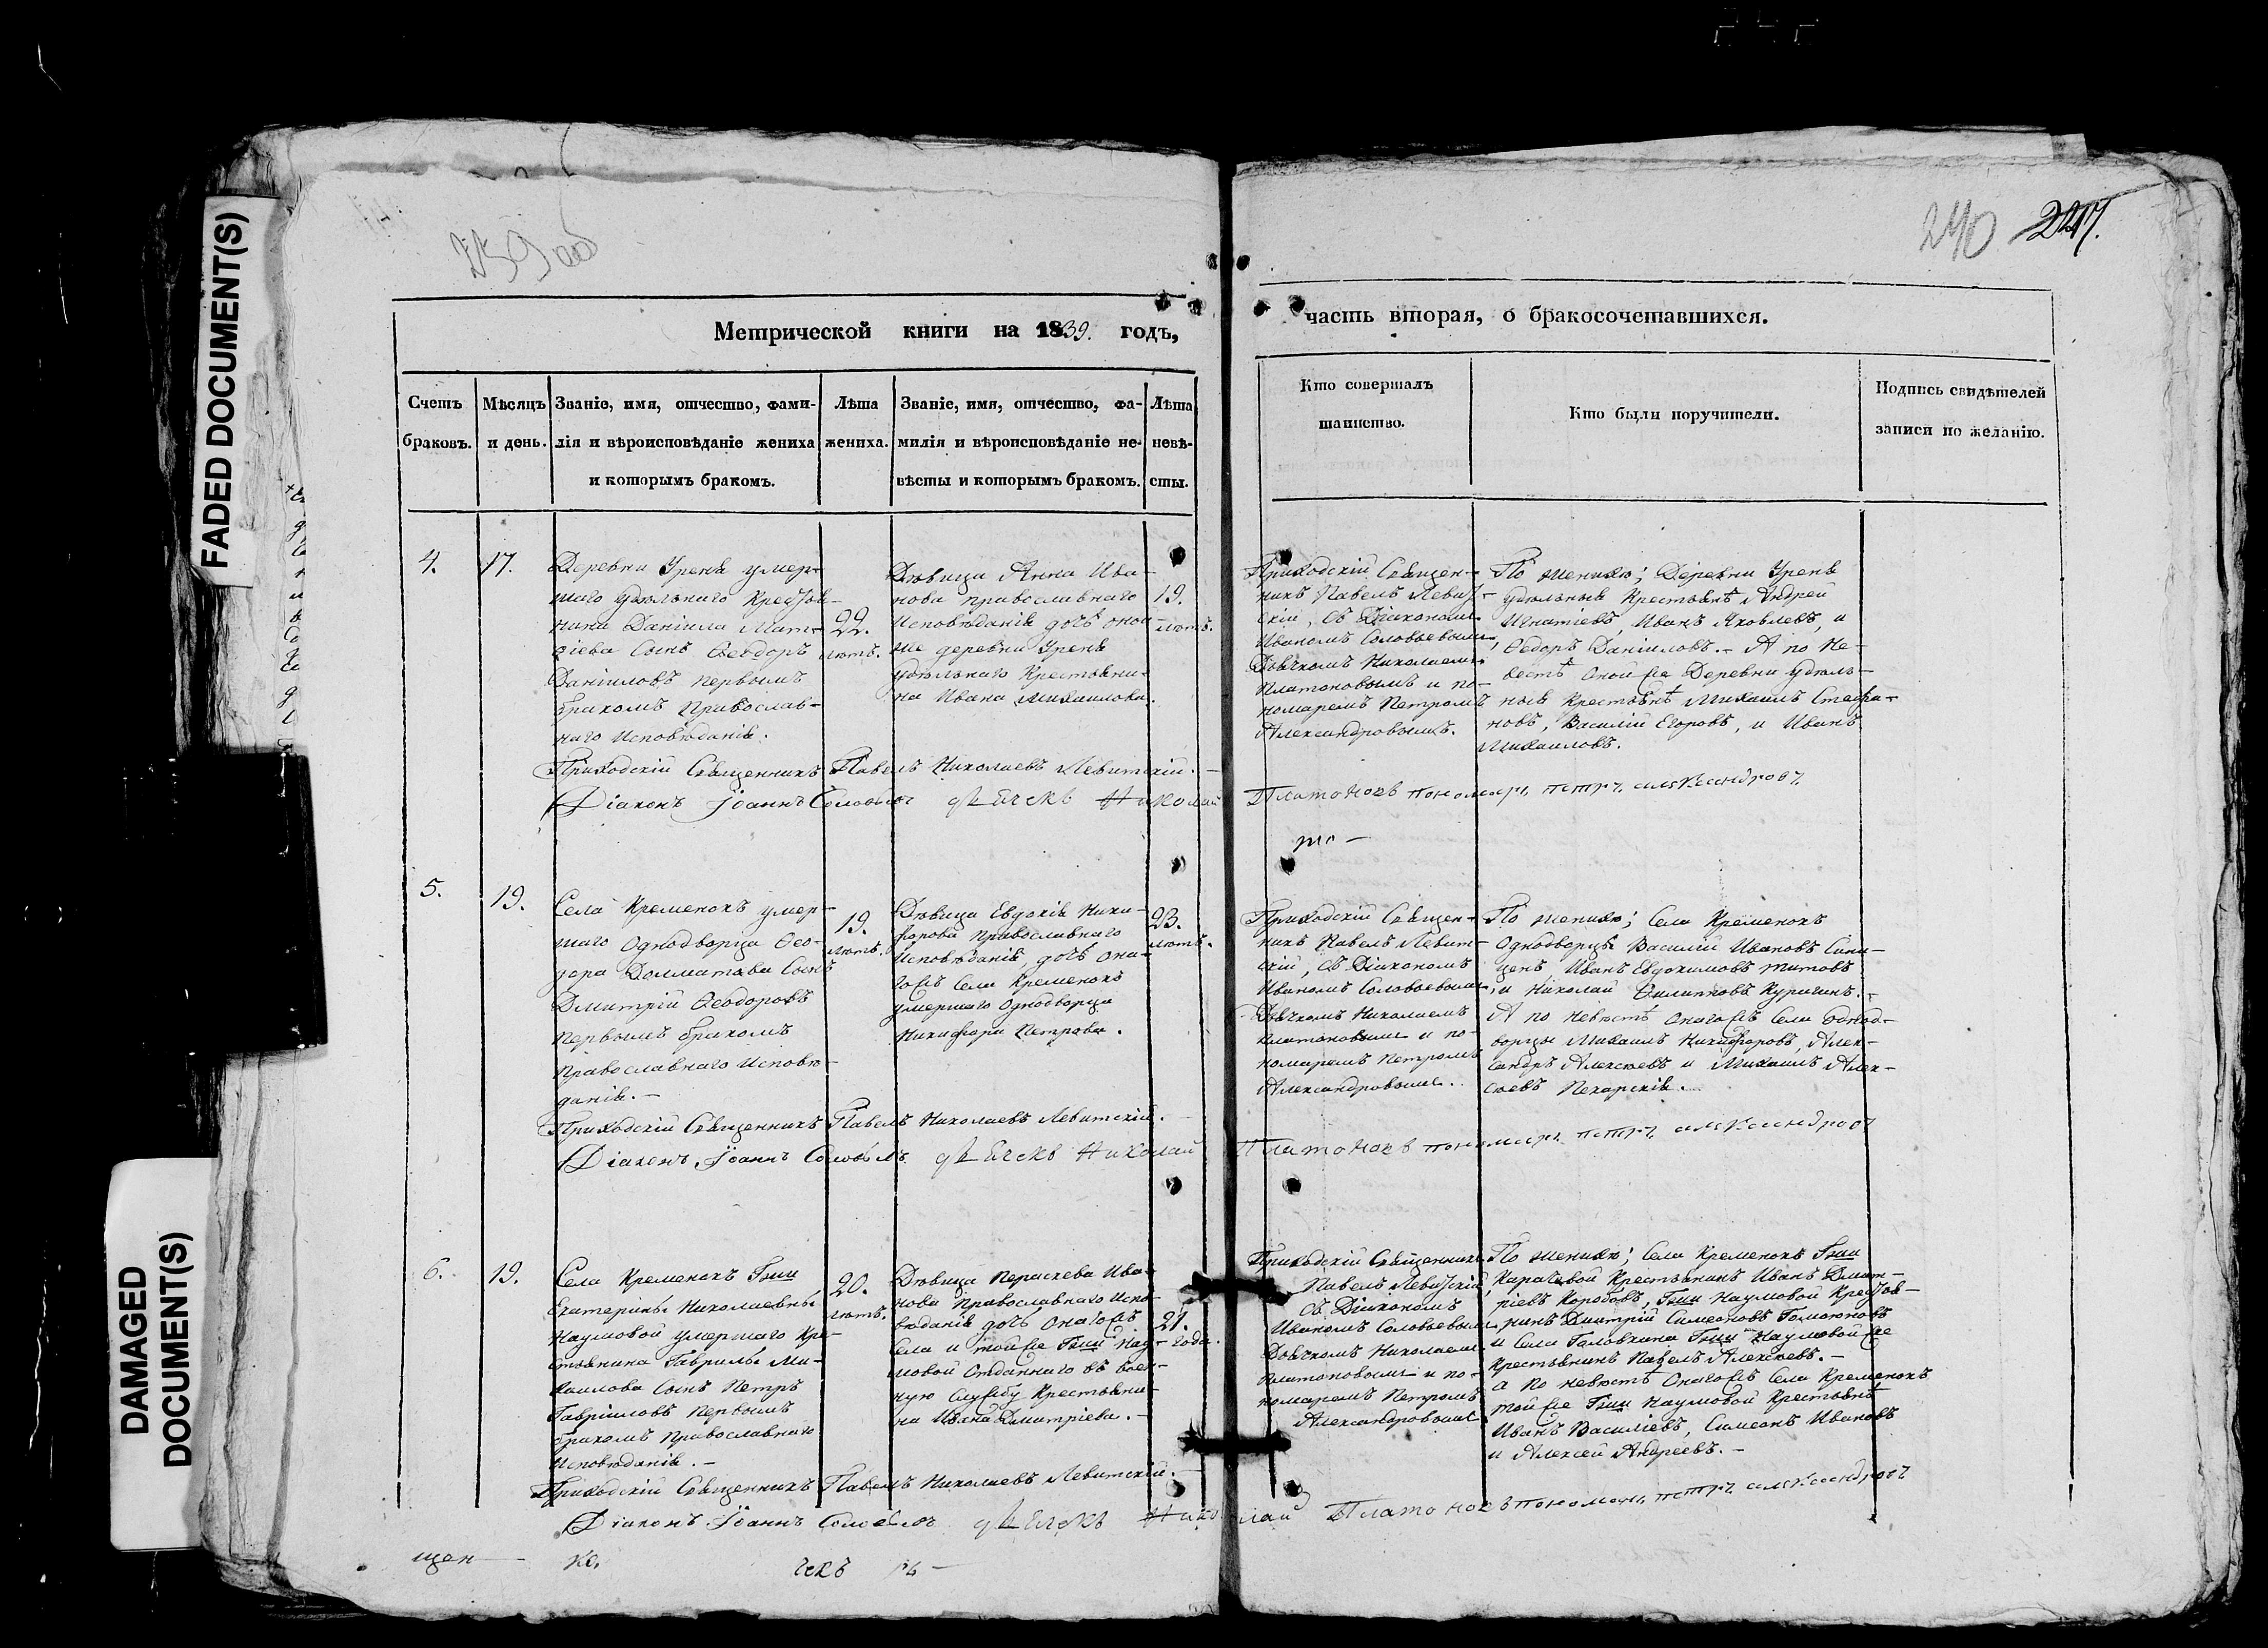 FADED DOCUMENT(S)
DAMAGED
DOCUMENT(S)
239 об
240
Метрической книги на 1839. годъ,
часть вторая, о бракосочетавшихся.
Счетъ
браковъ.
Мѣсяцъ
и день.
Званіе, имя, отчество, фами-
лія и вѣроисповѣданіе жениха
и которымъ бракомъ.
Лѣта
жениха.
Званіе, имя, отчество, фа-
милія и вѣроисповѣданіе не-
вѣсты и которымъ бракомъ.
Лѣта
невѣ-
сты.
Кто совершалъ
таинство.
Кто были поручители.
Подпись свидѣтелей
записи по желанію.
4.
17.
Деревни Уреня умер-
шаго удѣльнаго Крестья-
нина Даніила Мат-
ѳіева Сынъ Ѳеодоръ
Даніиловъ первымъ
бракомъ Православ-
наго Исповѣданія.
22.
лѣтъ.
Дѣвица Анна Ива-
нова православнаго
Исповѣданія дочь оной
же деревни Уреня
удѣльнаго Крестьяни-
на Ивана Михаилова.
19.
лѣтъ.
Приходскій Священ-
никъ Павелъ Левит-
скій, съ Діакономъ
Иваномъ Соловьевымъ,
Дьячкомъ Николаемъ
Платоновымъ и по-
номаремъ Петромъ
Александровымъ.
По женихѣ; Деревни Уреня
удѣльныя Крестьянѣ Андрей
Игнатіевъ, Иванъ Яковлевъ, и
Ѳедоръ Даніиловъ. - А по Не-
вестѣ Оной же Деревни удѣль-
ныя Крестьянѣ Михаилъ Стефа-
новъ, Василій Егоровъ, и Иванъ
Михаиловъ.
Приходскій Священникъ Павелъ Николаевъ Левитскій. -
Діаконъ Іоаннъ Соловьевъ дьячекъ Николай Платоновъ пономарь петръ александровъ
5.
19.
Села Кременокъ умер-
шаго Однодворца Ѳео-
дора Долматова Сынъ
Дмитрій Ѳеодоровъ
Первымъ бракомъ
Православнаго Исповѣ-
данія. -
19.
лѣтъ.
Дѣвица Евдокія Ники-
форова Православнаго
Исповѣданія, дочь она-
гожъ Села Кременокъ
умершаго Однодворца
Никифора Петрова.
23.
лѣтъ.
Приходскій Священ-
никъ Павелъ Левит-
скій, съ Діакономъ
Иваномъ Соловьевымъ,
Дьячкомъ Николаемъ
Платоновымъ и по-
номаремъ Петромъ
Александровымъ.
По женихѣ; Села Кременокъ
Однодворцы Василій Ивановъ Сини-
ценъ, Иванъ Евдокимовъ Титовъ
и Николай Филипповъ Куригинъ. -
А по невѣстѣ Онагожъ Села Однод-
ворцы Михаилъ Никифоровъ, Алек-
сандръ Алексѣевъ и Михаилъ Алек-
сѣевъ Пекарскія.
Приходскій Священникъ Павелъ Николаевъ Левитскій. -
Діаконъ Іоаннъ Соловьевъ дьячекъ Николай Платоновъ пономарь петръ александровъ
6.
19.
Села Кременокъ Гжи
Екатерины Николаевны
Наумовой умершаго Кре-
стьянина Гаврилы Ми-
хаилова Сынъ Петръ
Гавриловъ Первымъ
бракомъ Православнаго
Исповѣданія. -
20.
лѣтъ.
Дѣвица Параскева Ива-
нова Православнаго Испо-
вѣданія дочь Онагожъ
Села и тойже Гжи Нау-
мовой Отданнаго въ воен-
ную Службу Крестьяни-
на Ивана Дмитріева. -
21.
года.
Приходскій Священникъ
Павелъ Левитскій,
съ Діакономъ
Иваномъ Соловьевымъ
Дьячкомъ Николаемъ
Платоновымъ и по-
номаремъ Петромъ
Александровымъ
По женихѣ; Села Кременокъ Гжи
Карачевой Крестьянинъ Иванъ Дмит-
ріевъ Коробовъ, Гжи Наумовой Крестья-
нинъ Дмитрій Симеоновъ
и Села Головкина Гжи Наумовой же
Крестьянинъ Павелъ Алексѣевъ. -
а по невѣстѣ Онагожъ Села Кременокъ
тойже Гжи Наумовой Крестьянѣ
Иванъ Василіевъ, Симеонъ Ивановъ
и Алексей Андреевъ. -
Приходскій Священникъ Павелъ Николаевъ Левитскій. -
Діаконъ Іоаннъ Соловьевъ дьячекъ Николай Платоновъ пономарь петръ александровъ
щен